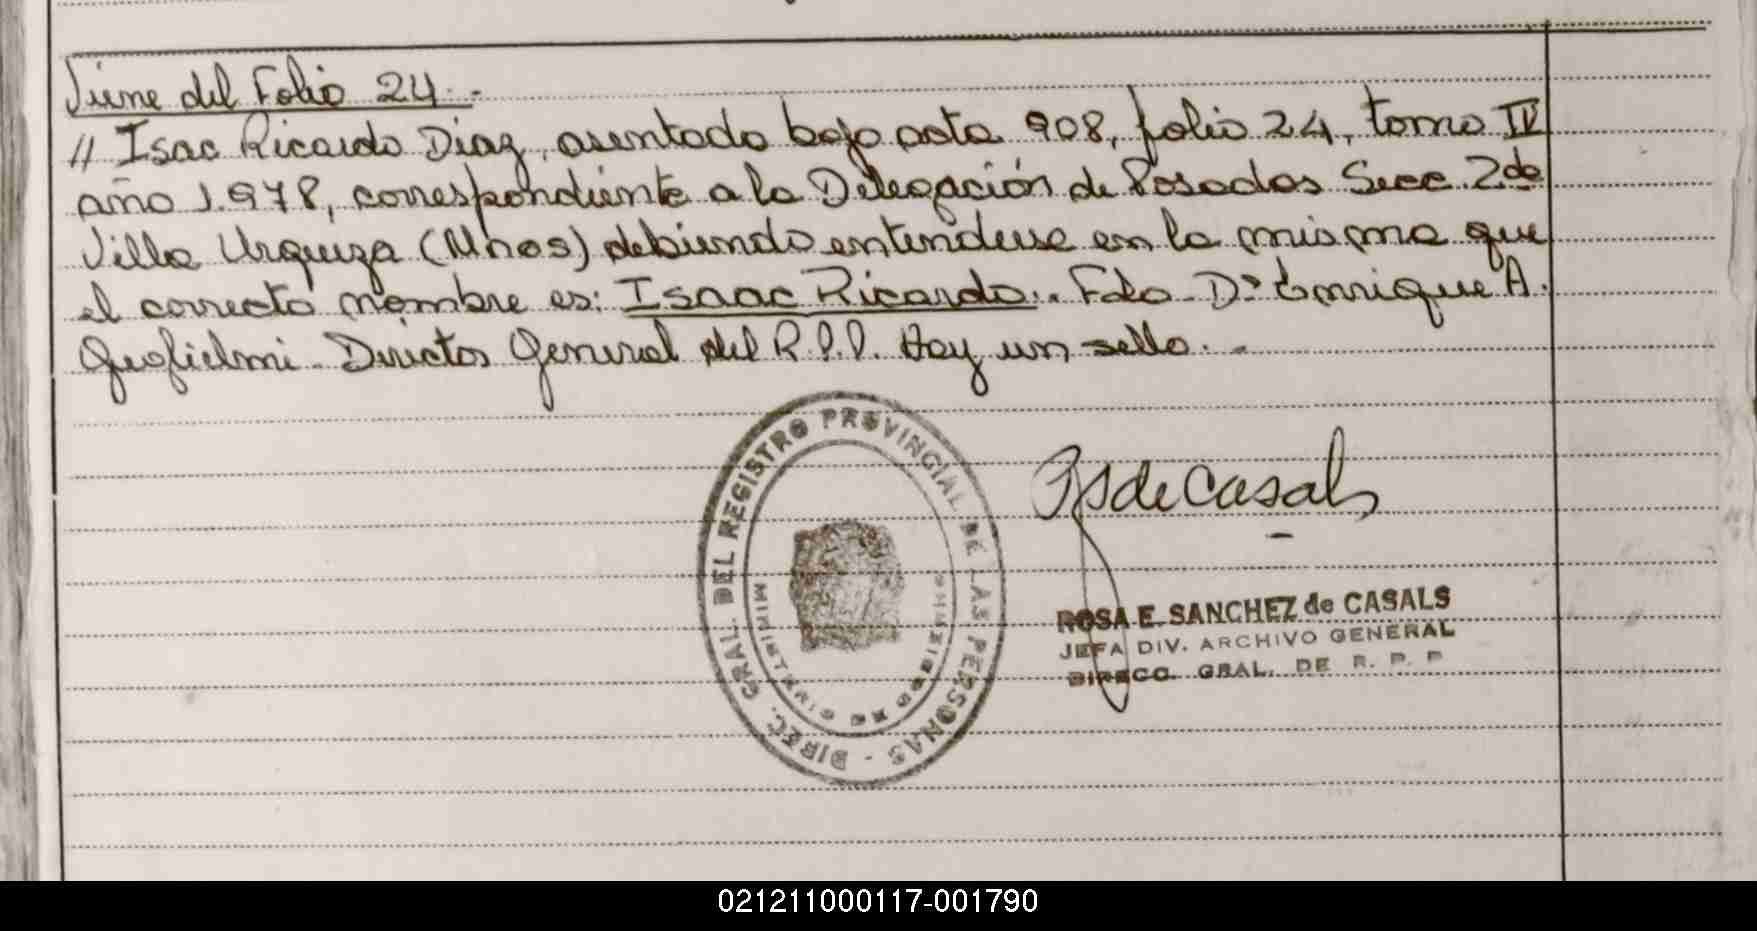 Viene del Folio 24.-
// Isac Ricardo Diaz, asentado bajo acta 908, folio 24, tomo IV
año 1.978, correspondiente a la Delegación de Posadas Secc. 2da
Villa Urquiza (Mnes) debiendo entenderse en la misma que
el correcto nombre es: Isaac Ricardo.. Fdo. Dr Enrique A.
Guglielmi. Director General del R.P.P. Hay un sello. -
DIREC. GRAL. DEL REGISTRO PROVINCIAL DE LAS PERSONAS -
MINISTERIO DE GOBIERNO
RSdeCasals
ROSA E. SANCHEZ de CASALS
JEFA DIV. ARCHIVO GENERAL
DIRECC. GRAL. DE R. P. P
021211000117-001790